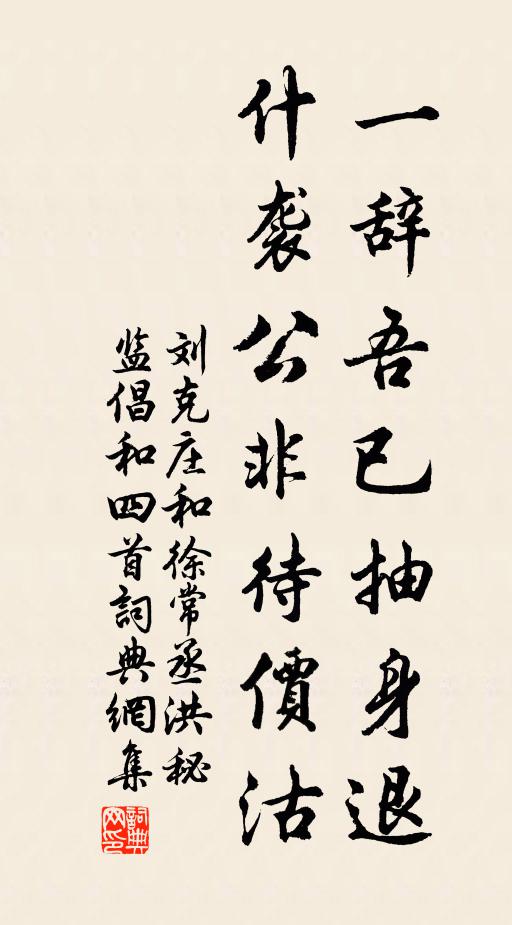 一辞吾已抽身退
什袭公非待價沽
刘克庄和徐常丞洪秘
监倡和四首詞典網集
詞典網印